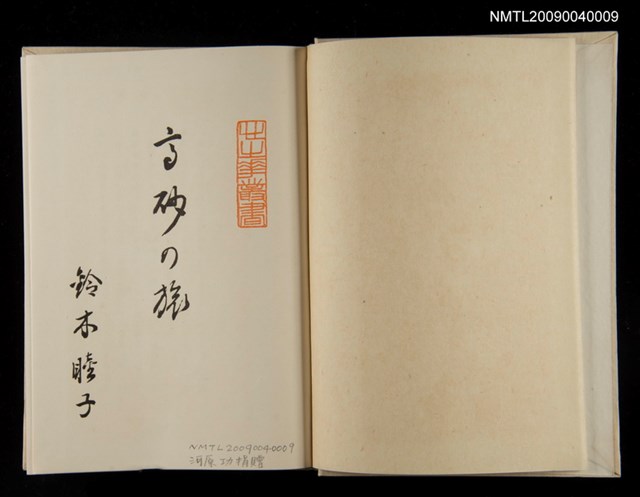 NMTL20090040009
山華叢書
高砂の旅
鈴木睦子
NMTL20090040009
河原功捐贈